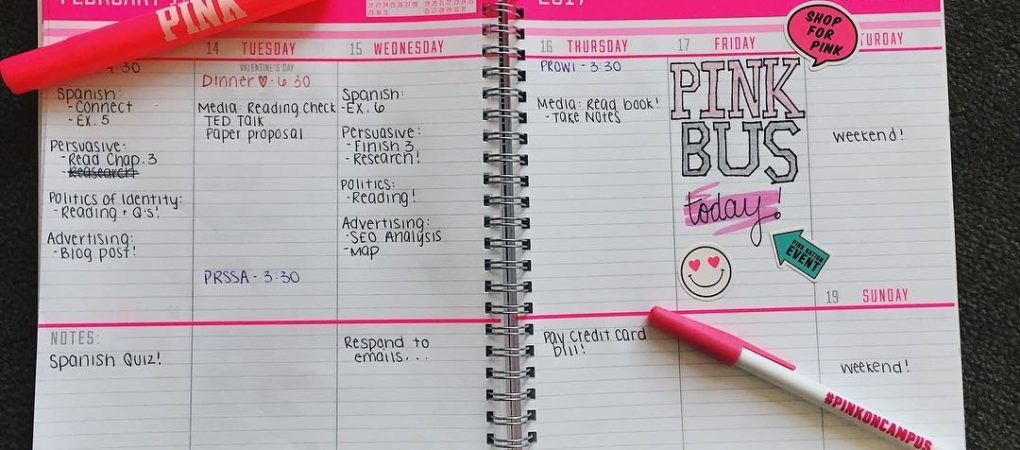 FEBRUARY
2017
PINK
14 TUESDAY
15 WEDNESDAY
16 THURSDAY
17 FRIDAY
SHOP
FOR
PINK
4:30
Spanish:
-Connect
-EX. 5
Persuasive:
-Read Chap. 3
-Reasearch
Politics of Identity:
-Reading + Q's!
Advertising:
-Blog post!
VALENTINE'S DAY
Dinner ♡ - 6:30
Media: Reading Check
TED Talk
Paper proposal
PRSSA - 3:30
Spanish:
-EX. 6
Persuasive:
-Finish 3
-Research!
Politics:
-Reading!
Advertising:
-SEO Analysis
-Map
PROWL - 3:30
Media: Read book!
-Take Notes
PINK
BUS
today!
PINK NATION
EVENT
weekend!
19 SUNDAY
NOTES:
Spanish Quiz!
Respond to
emails...
Pay Credit Card
bill!
weekend!
#PINKONCAMPUS